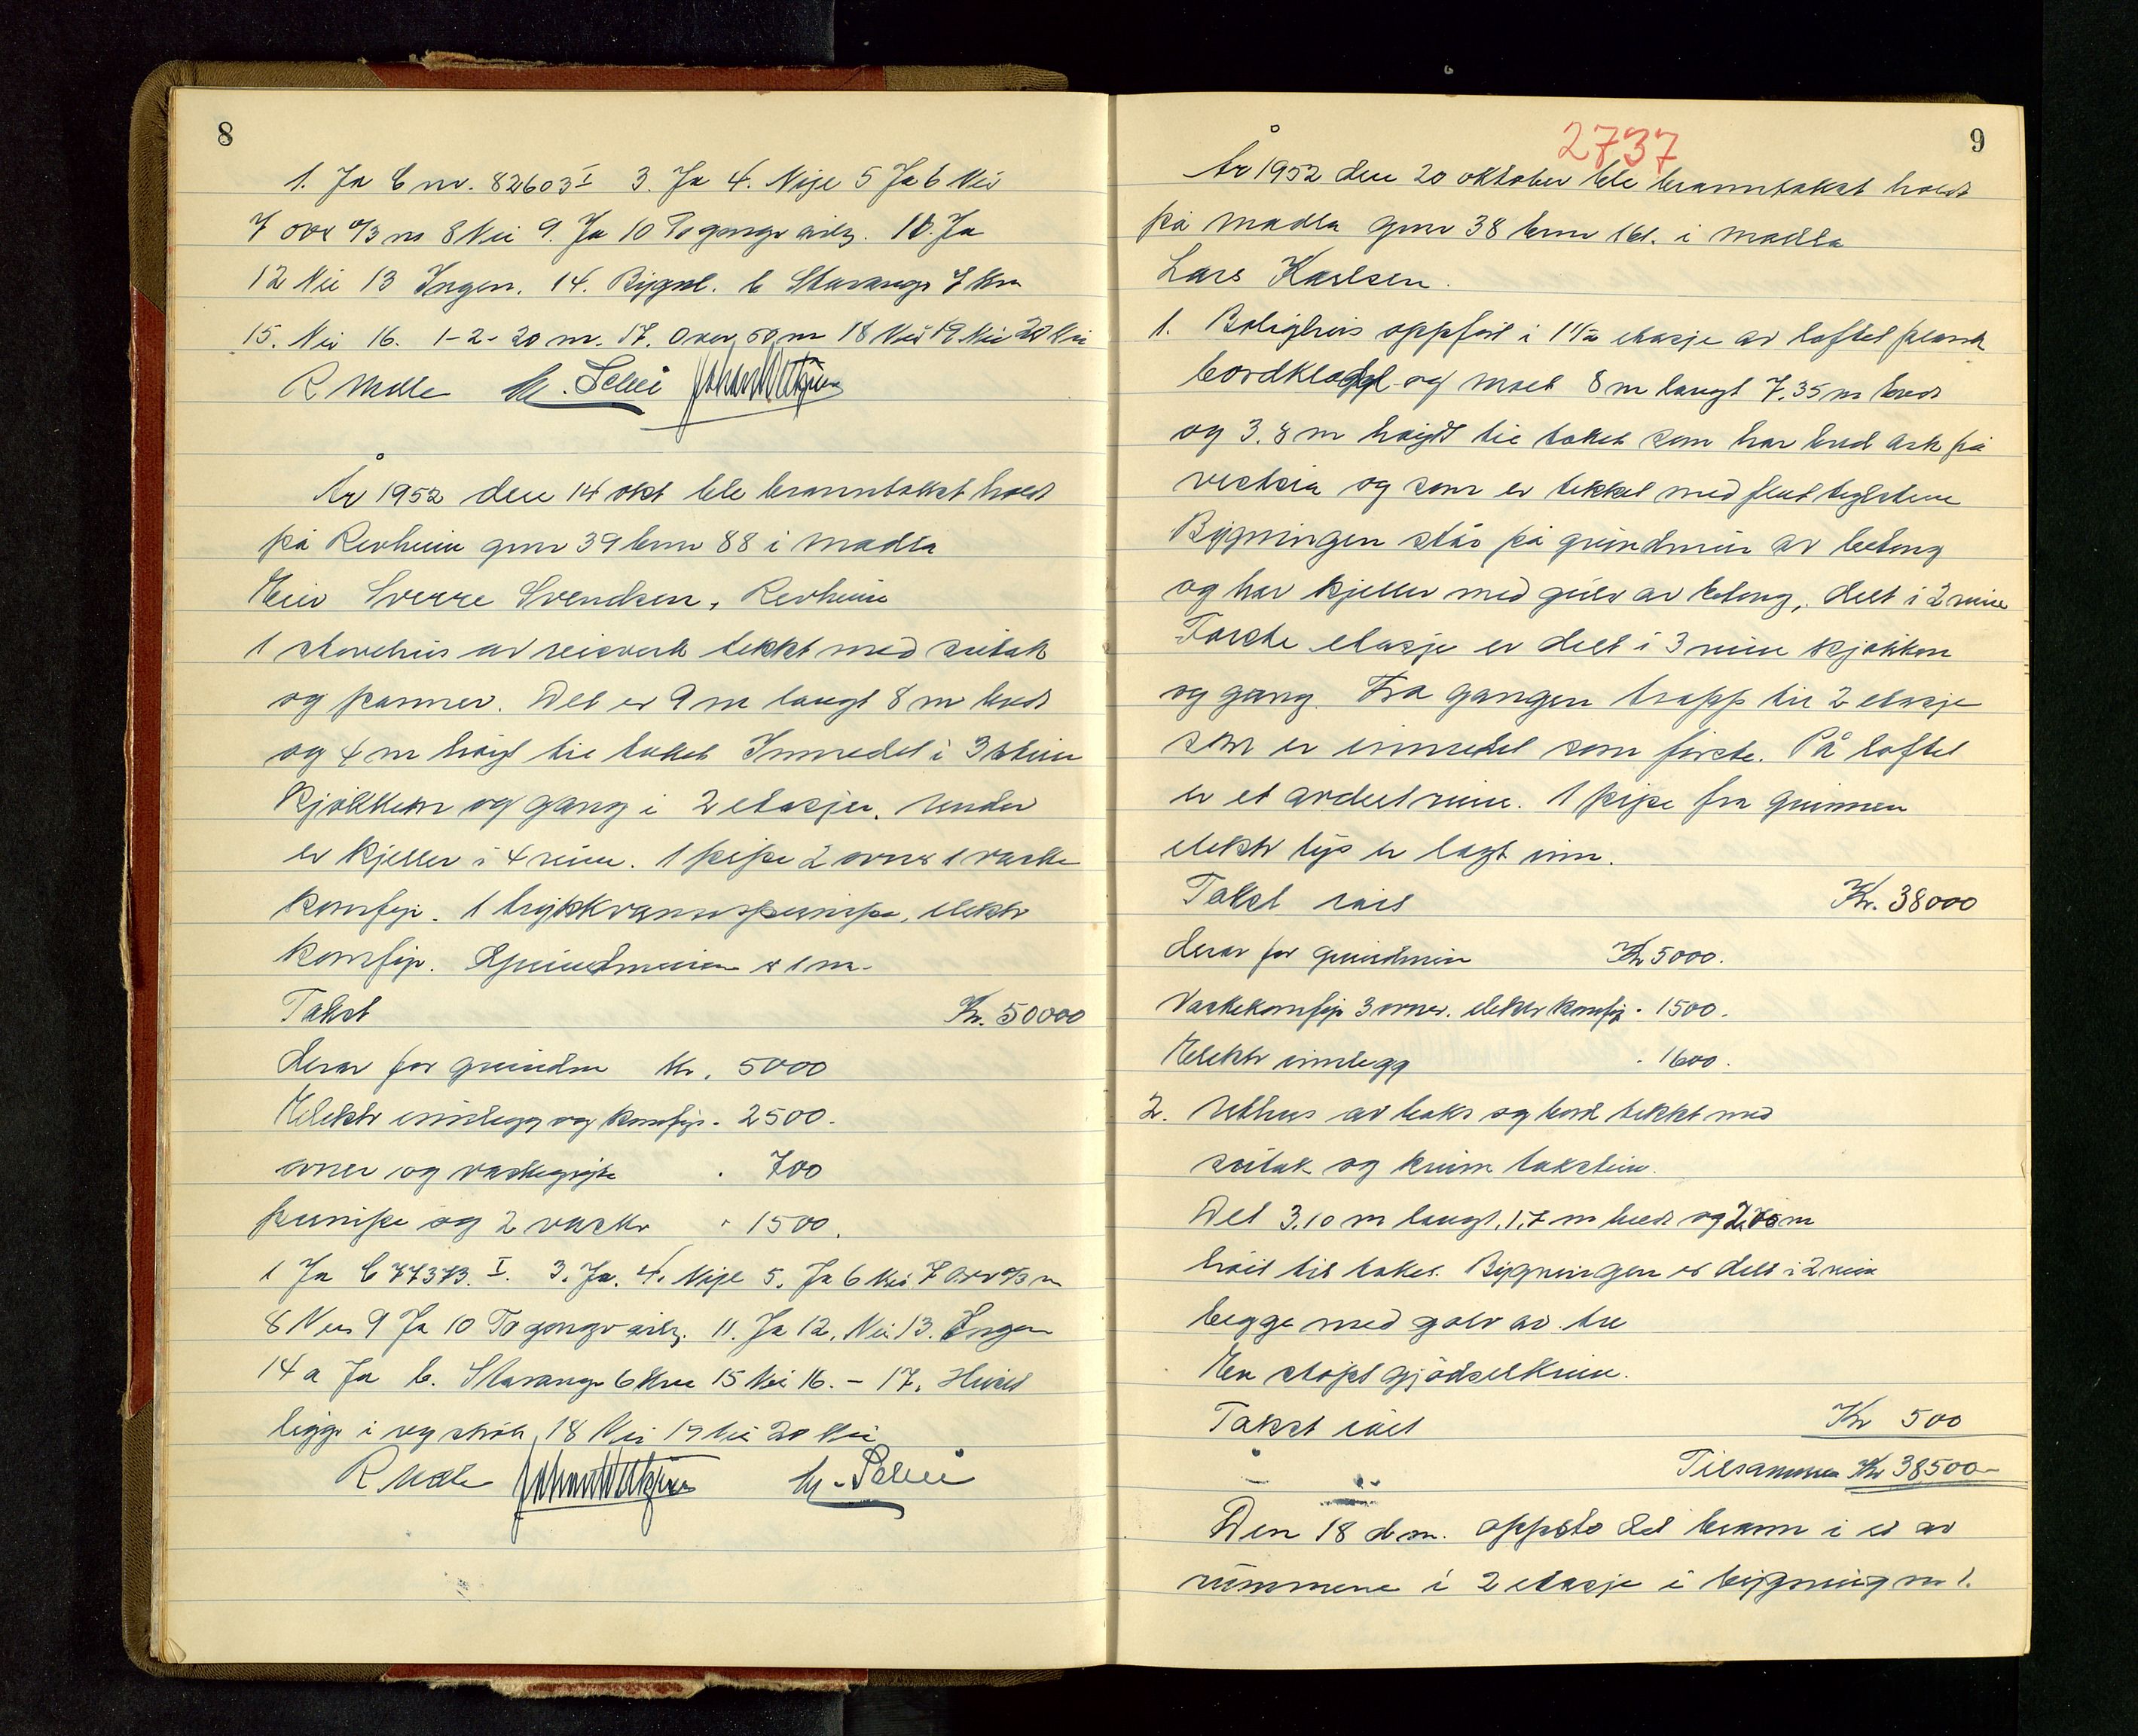 8
1. Ja b nr. 82603 I 3. Ja 4. Nije 5 Ja 6 Nei
7 over 0/3 m 8 Nei 9. Ja 10 To gonger årlig. 11. Ja
12 Nei 13 Ingen. 14. Bygnl. b Stavanger 7 km
15. Nei 16. 1-2-20 m. 17. Over 50 m 18 Nei 19 Nei 20 Nei
R Molle
År 1952 den 14 okt ble branntakst holdt
på Revheim gnr 39 bnr 88 i Madla
Eier Sverre Svendsen, Revheim
1 stovehus av reisverk tekkt med sutak
og panner. Det er 9 m langt 8 m bredt
og 4 m høigt til taket Innredet i 3 stuer
kjøkken og gang i 2 etasjer. Under
er kjeller i 4 rum. 1 pipe 2 ovner 1 vaske
komfyr. 1 trykkvannspumpe, elektr
komfyr. Grundmuren er 1 m.
Takst Kr. 50000
derav for grundm kr. 5000
Elektr innlegg og komfyr . 2500.
ovner og vaskegryte . 700
pumpe og 2 vasker . 1500.
1 Ja b 77373. I. 3. Ja. 4. Nije 5. Ja 6 Nei 7 Over 0/3 m
8 Nei 9 Ja 10 To gonger årlig. 11. Ja 12. Nei 13. Ingen
14 a Ja b. Stavanger 6 km 15 Nei 16. - 17. Huset
ligger i 18 Nei 19 Nei 20 Nei
R Molle
2737
9
År 1952 den 20 oktober ble branntakst holdt
på Madla gnr 38 bnr 161. i Madla
Lars Karlsen.
1. Bolighus oppført i 1 1/2 etasje av loftet plank
bordkledd og malt 8 m langt 7.35 m bredt
og 3.8 m høigt til taket som har bred ark på
vestsia og som er tekket med flat teglstein
Bygningen står på grundmur av betong
og har kjeller med gulv av betong, delt i 2 rum
Første etasje er delt i 3 rum kjøkken
og gang. Fra gangen trapp til 2 etasje
som er innredet som første. På loftet
er et avdelt rum. 1 pipe fra grunnen
elektr lys er lagt inn.
Takst Kr. 38000
derav for grundmur Kr 5000.
Vaskekomfyr 3 ovner. elektr komfyr . 1500.
Elektr innlegg . 1600.
2. Uthus av laks og bord tekkt med
sutak og krum takstein.
Det 3.10 m langt, 1.7 m bredt og m
høit til taket. Bygningen er delt i 2 rum
begge med golv av tre
En støpt gjødselkum.
Takst Kr 500
Tilsammen Kr 38500-
Den 18 d m. oppsto det brann i et av
rummene i 2 etasje i bygning nr 1.